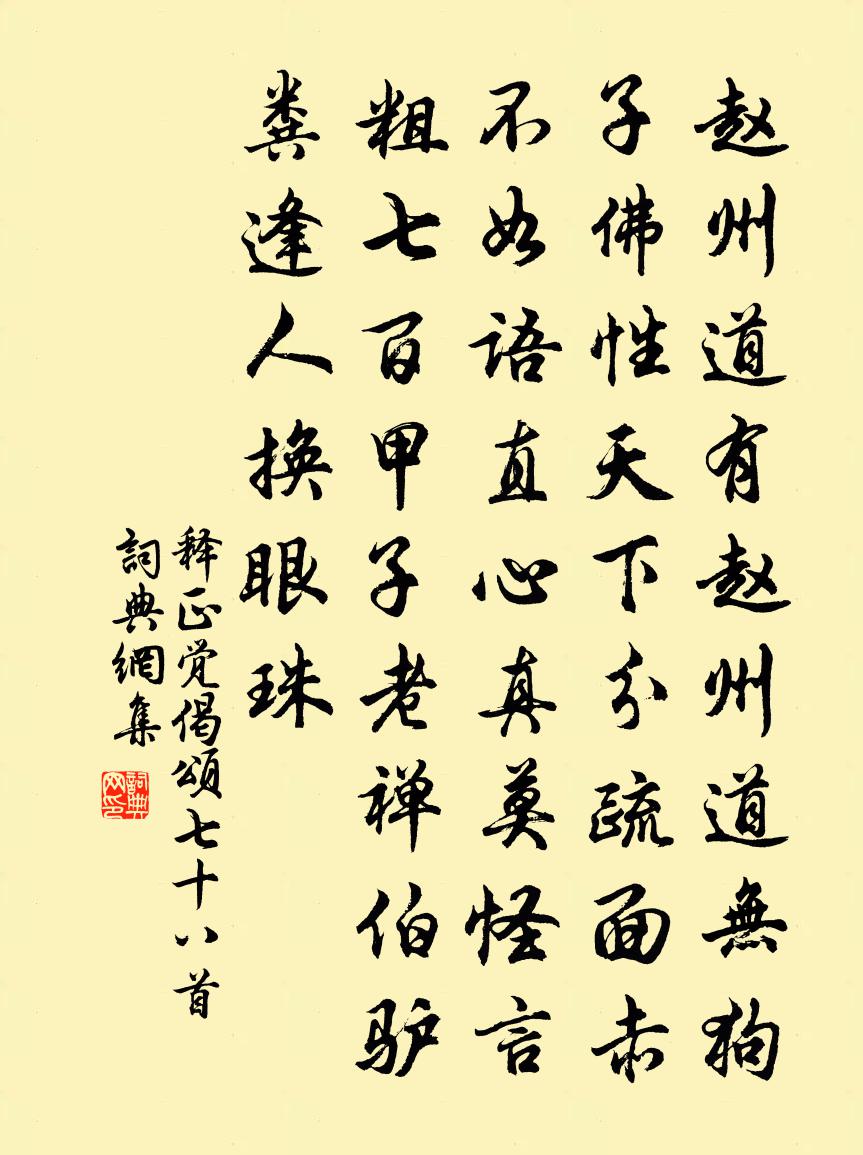 赵州道有赵州道無狗
子佛性天下分疏面赤
不如语直心真莫怪言
粗七百甲子老禅伯驴
粪逢人换眼珠
释正觉偈颂七十八首
詞典網集
詞典网印